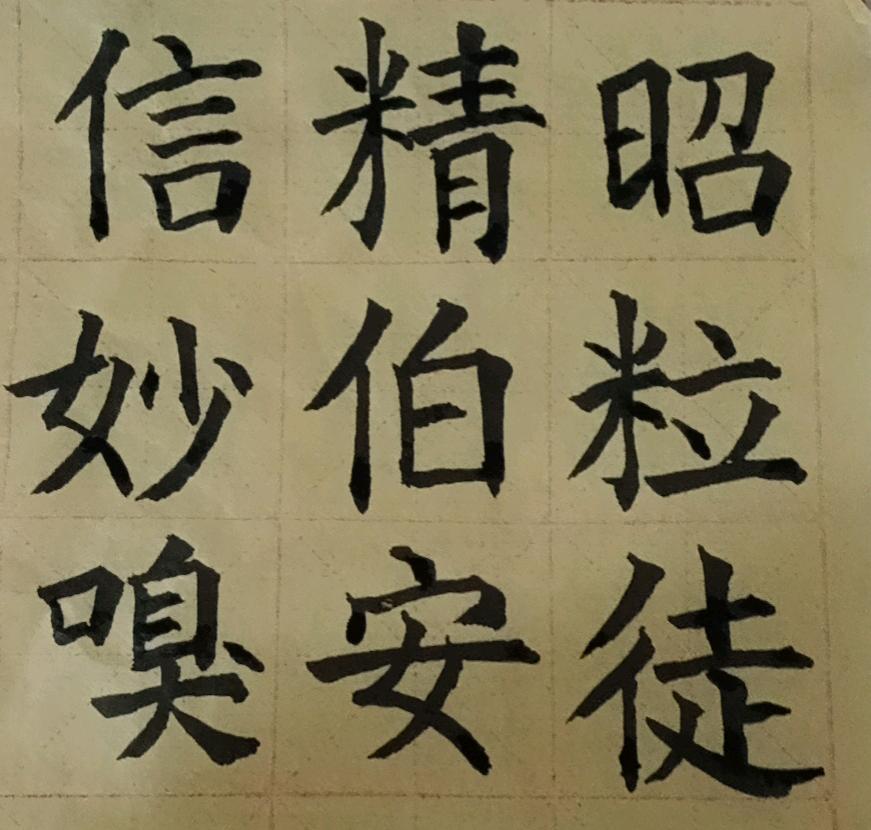 昭粒徒
精伯安
信妙嗅